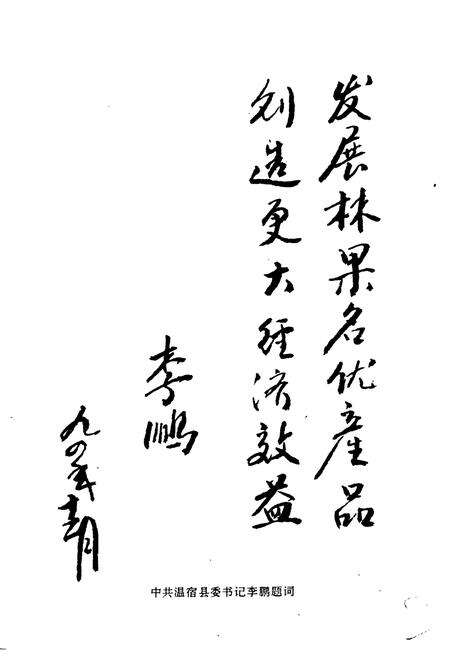 发展林果名优産品
创造更大经济效益
李鹏
九四年十二月
中共温宿县委书记李鹏题词